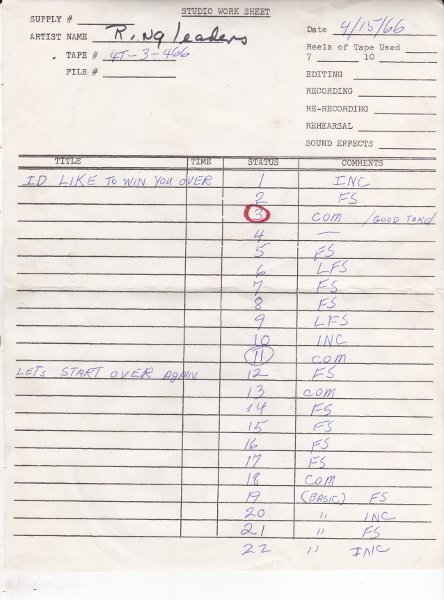 STUDIO WORK SHEET
SUPPLY #
ARTIST NAME Ringleaders
Date 4/15/66
TAPE # 4T-3-466
Reels of Tape Used
7 10
FILE #
EDITING
RECORDING
RE-RECORDING
REHEARSAL
SOUND EFFECTS
TITLE TIME STATUS COMMENTS
I'D LIKE TO WIN YOU OVER 1 INC
2 FS
3 COM /GOOD TAKE/
4 —
5 FS
6 LFS
7 FS
8 FS
9 LFS
10 INC
11 COM
LETS START OVER AGAIN 12 FS
13 COM
14 FS
15 FS
16 FS
17 FS
18 COM
19 (BASIC) FS
20 " INC
21 " FS
22 " INC